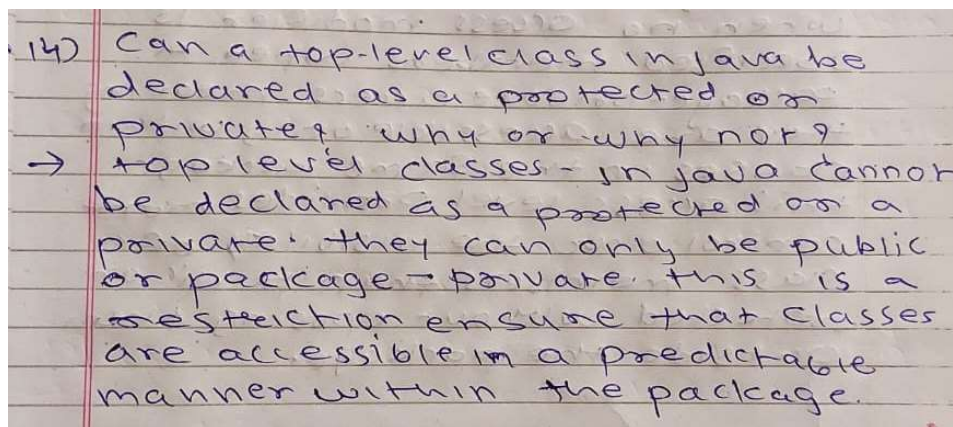 14) Can a top-level class in java be
declared as a protected or
private? why or why not?
→ top level classes - in java cannot
be declared as a protected or a
private. they can only be public
or package-private. this is a
restriction ensure that classes
are accessible in a predictable
manner within the package.